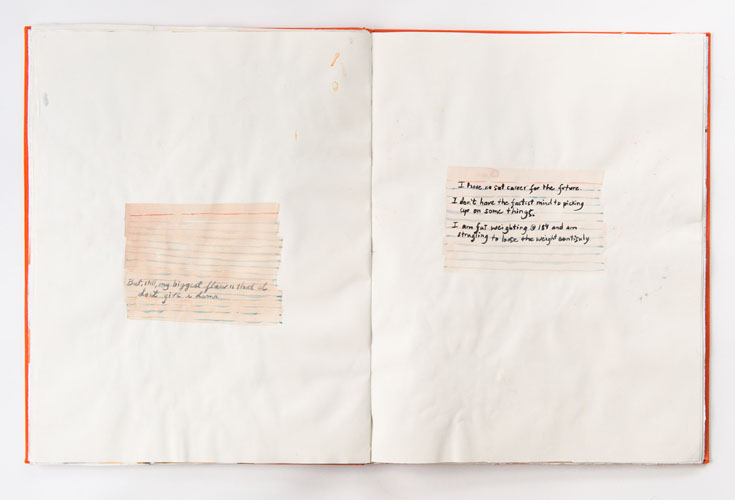 But, still, my biggest flaw is that I
don't give a damn.
I have no set career for the future.
I don't have the fastist mind to picking
up on some things.
I am fat weighting @ 189 and am
strugling to loose the weight